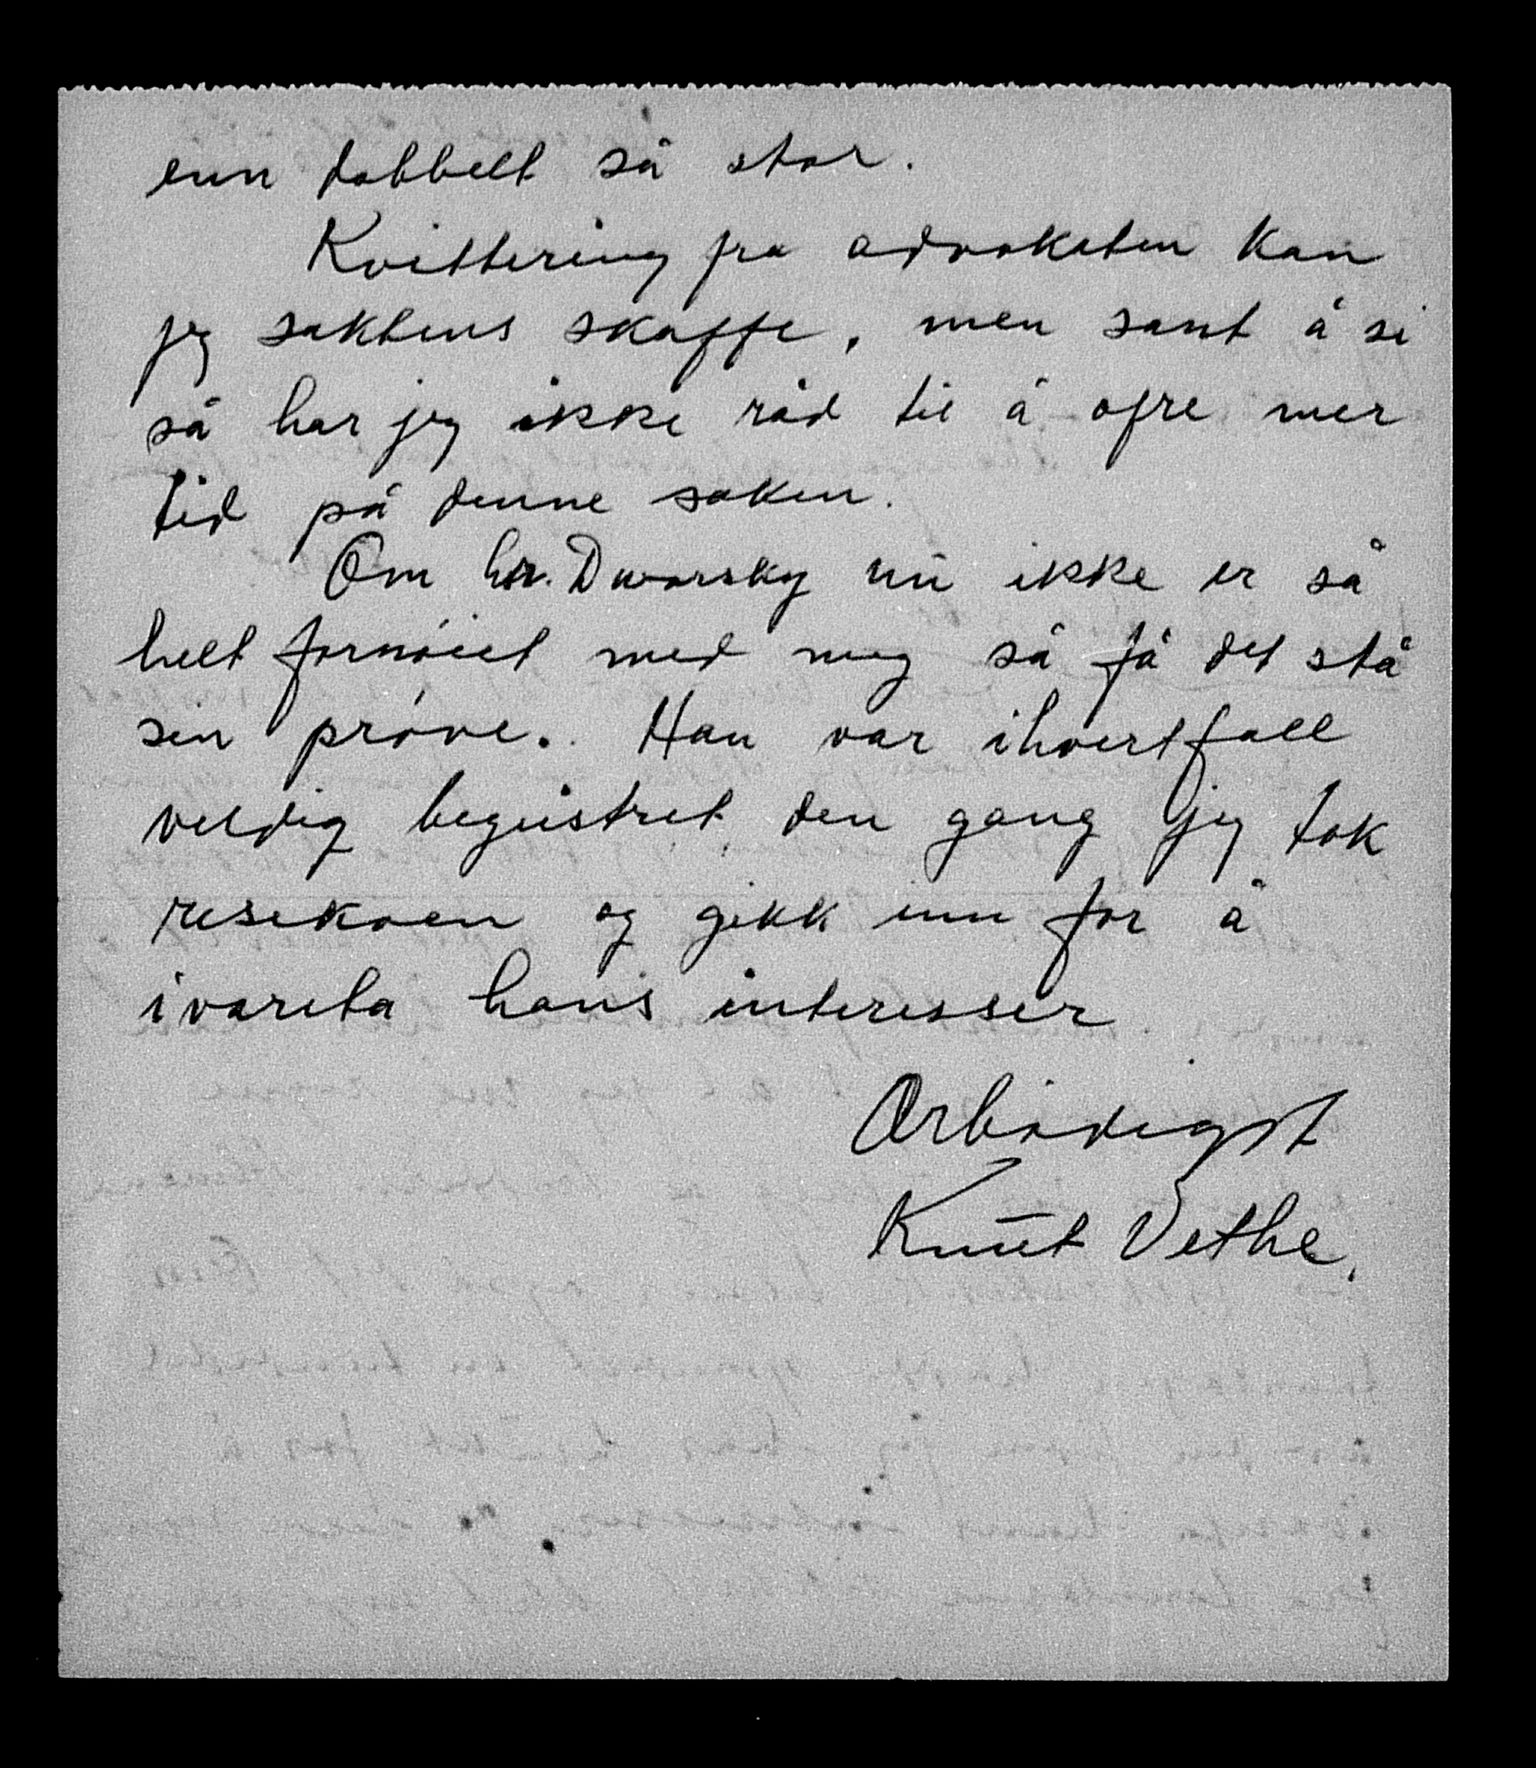 enn dobbelt så stor.
Kvittering fra advokaten kan
jeg saktens skaffe, men sant å si
så har jeg ikke råd til å ofre mer
tid på denne saken.
Om hr. Dworsky nu ikke er så
helt fornøiet med meg så få det stå
sin prøve. Han var ihvertfall
veldig begeistret den gang jeg tok
resikoen og gikk inn for å
ivareta hans interesser
Ærbødigst
Knut Vethe.